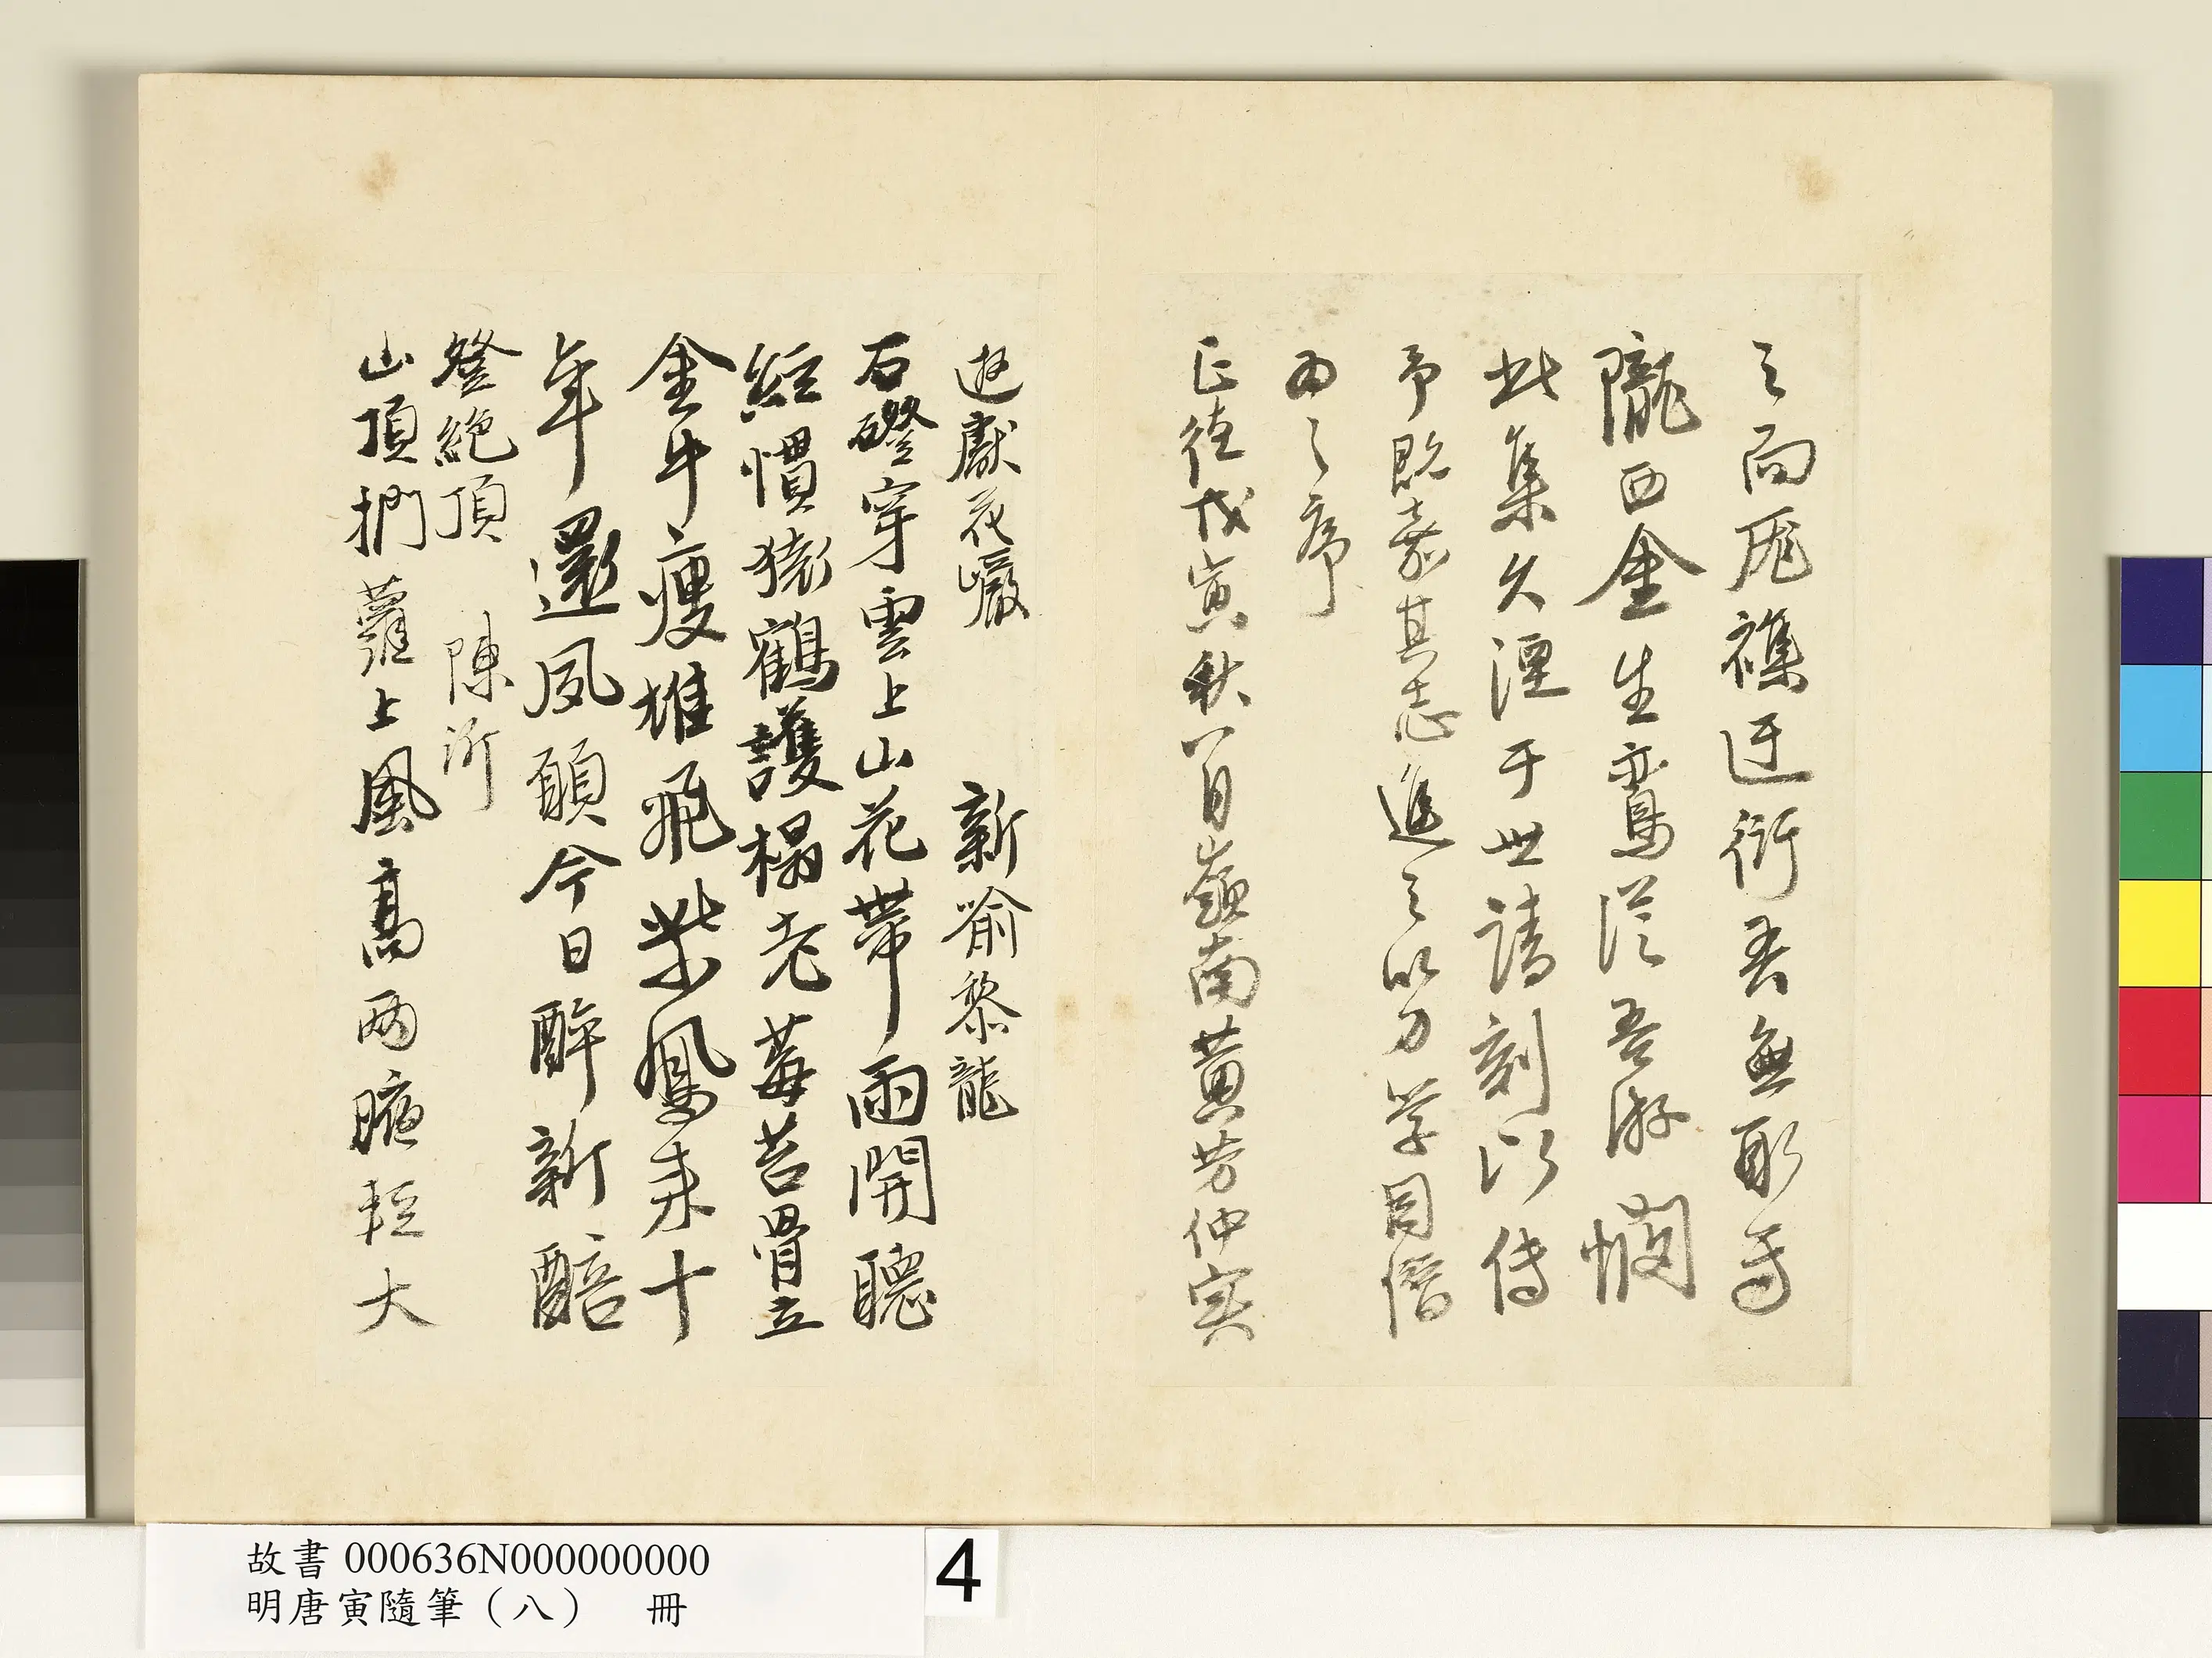 之而厖襍迂衍吾無取焉
隴西金生鸞從吾游憫
此集久湮于世請刻以傳
予既嘉其志進之以力學因僭
為之序
正德戊寅秋八月嶺南黃芳仲實
遊獻花巖 新喻黎龍
石磴穿雲上山花帶雨開聽
經慣猿鶴護榻老莓苔骨立
金牛瘦雄飛紫鳳來十
年還夙願今日醉新醅
登絕頂 陳沂
山頂捫蘿上風高兩腋輕大
故書 000636N000000000
明唐寅隨筆（八） 冊
4